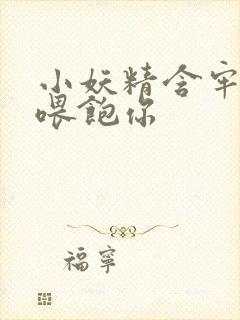 小妖精含牢
喂飽你
福寧